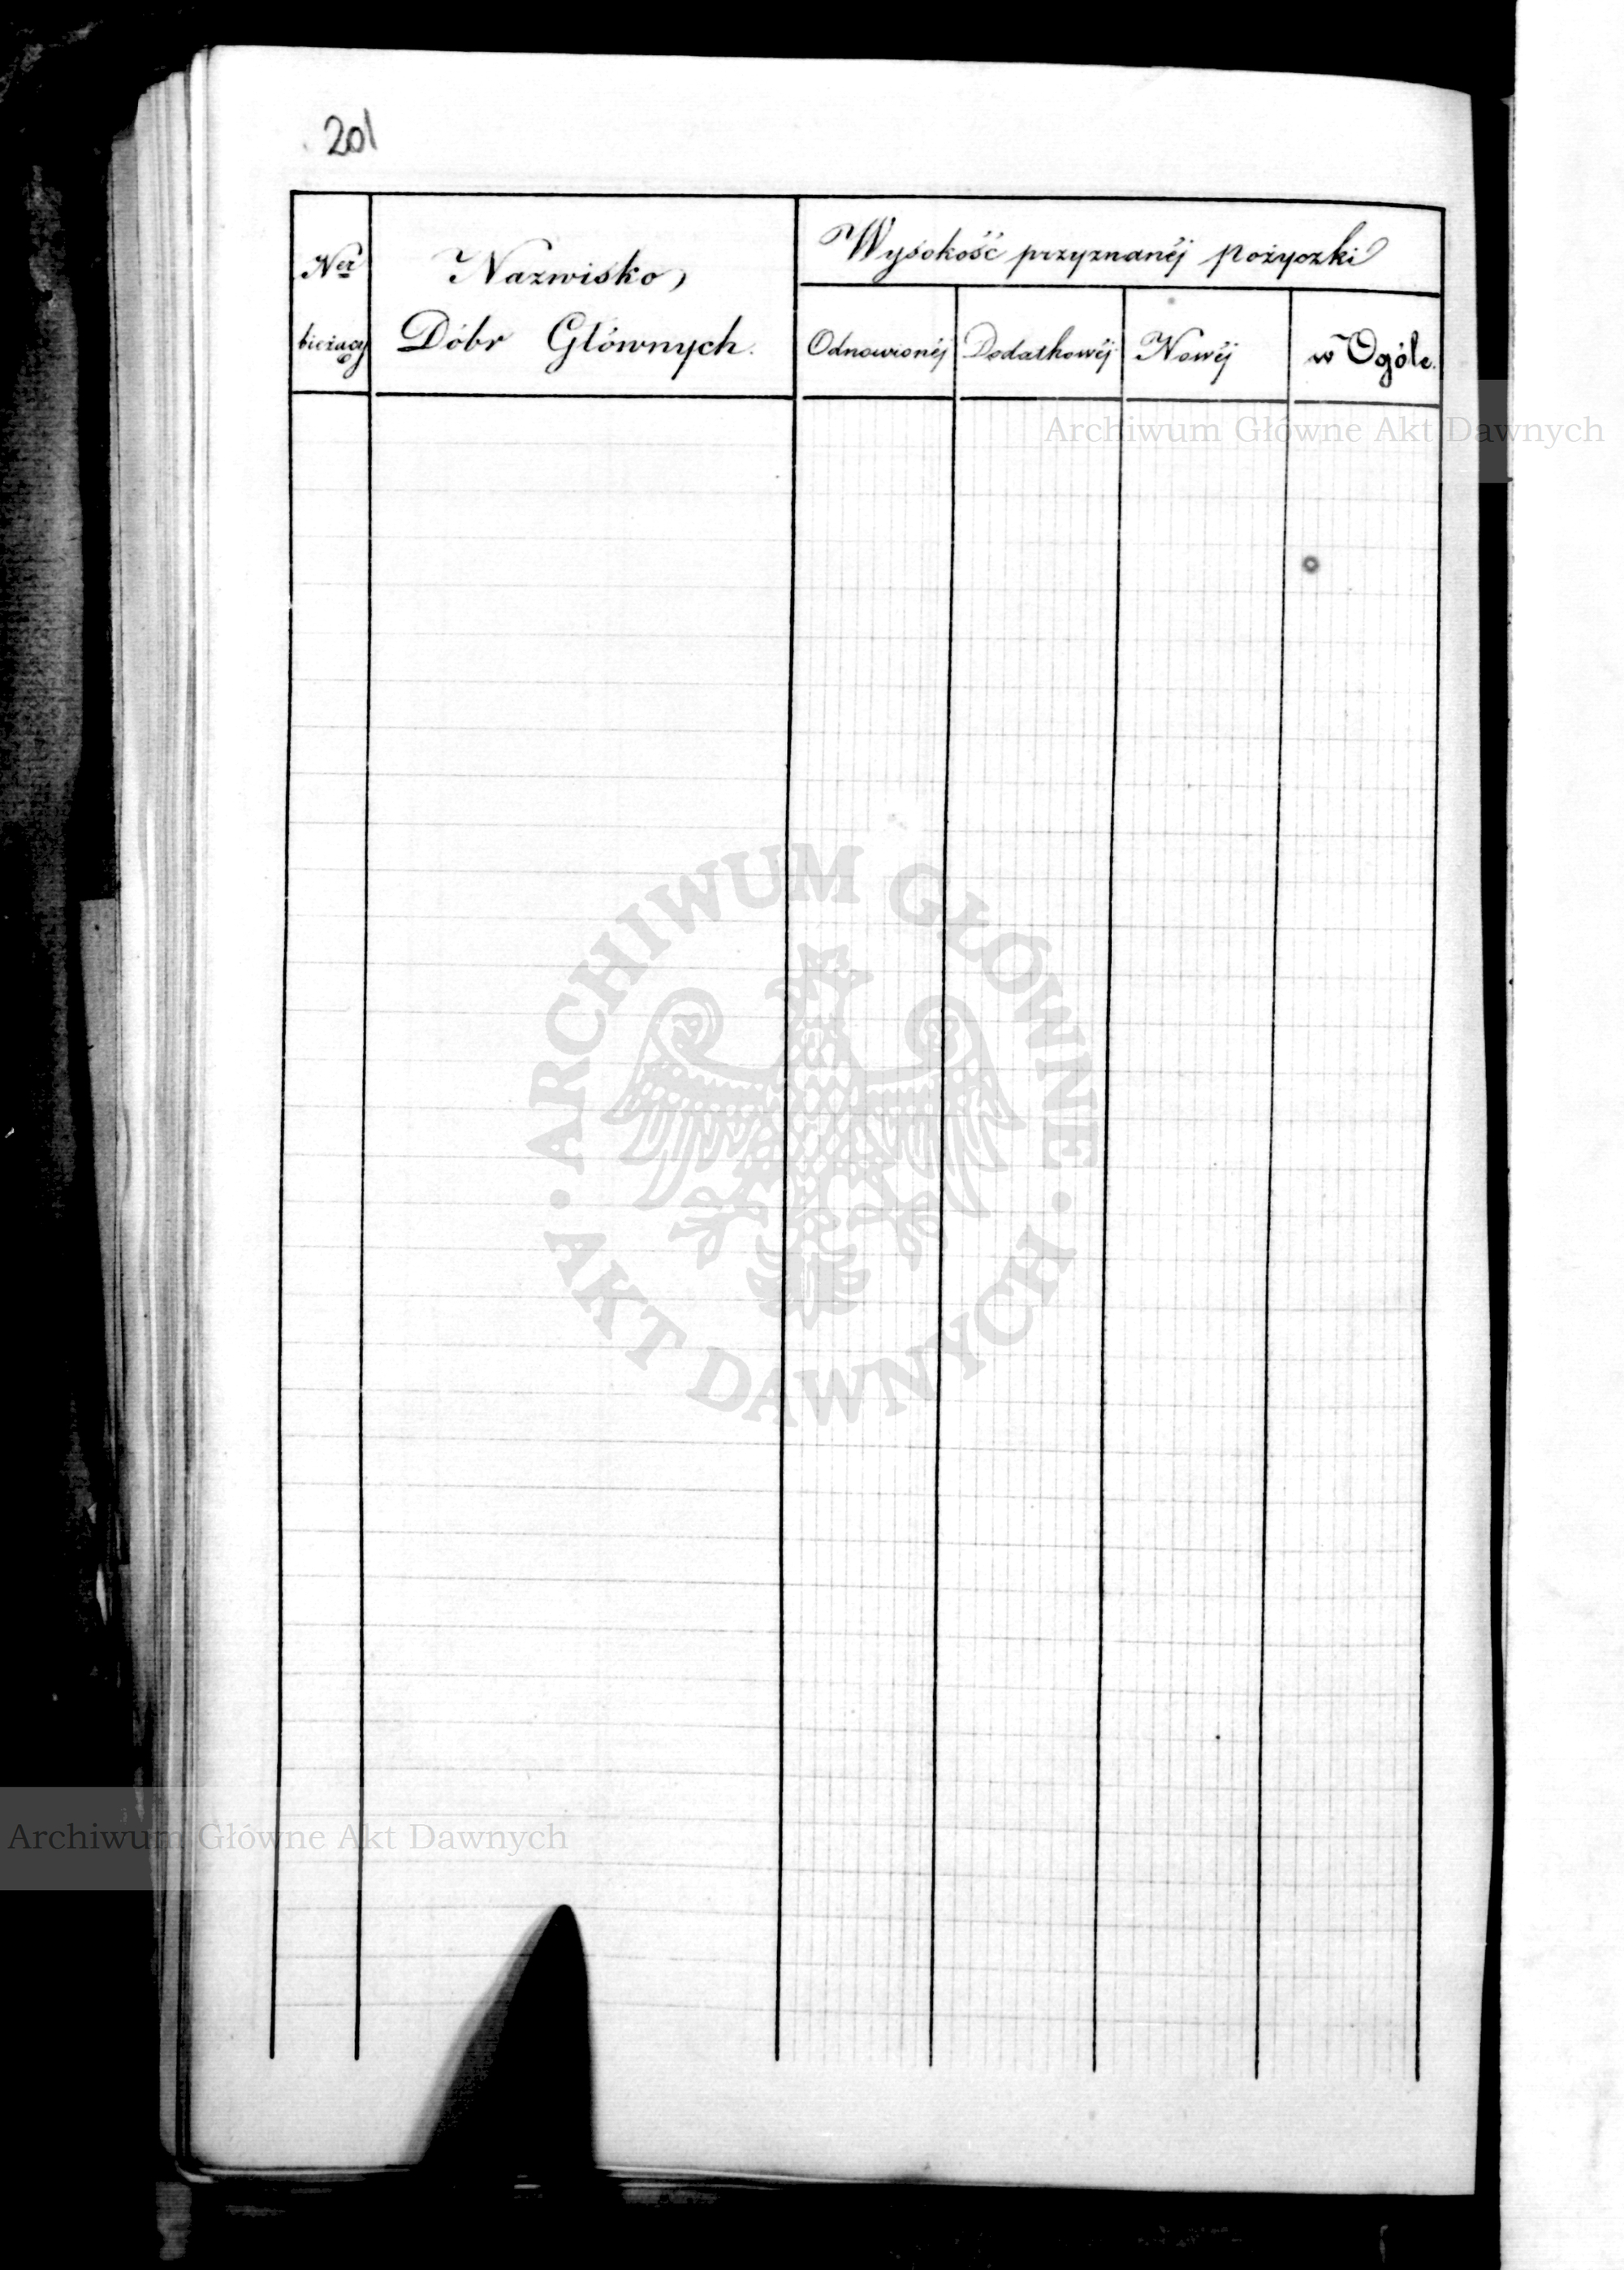 201
Ner bieżący
Nazwisko
Dóbr Głównych.
Wysokość przyznanéj pożyczki
Odnowionéj
Dodatkowéj
Nowéj
w Ogóle.
Archiwum Główne Akt Dawnych
ARCHIWUM GŁÓWNE
AKT DAWNYCH
Archiwum Główne Akt Dawnych